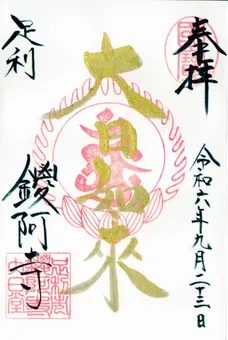 奉拝
令和六年九月二十三日
大日如来
足利
鑁阿寺